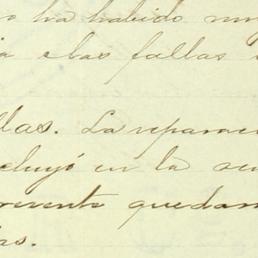 o ha habido
a las fallas
llas. La repara
cluyó en la se
presente quedan
as.